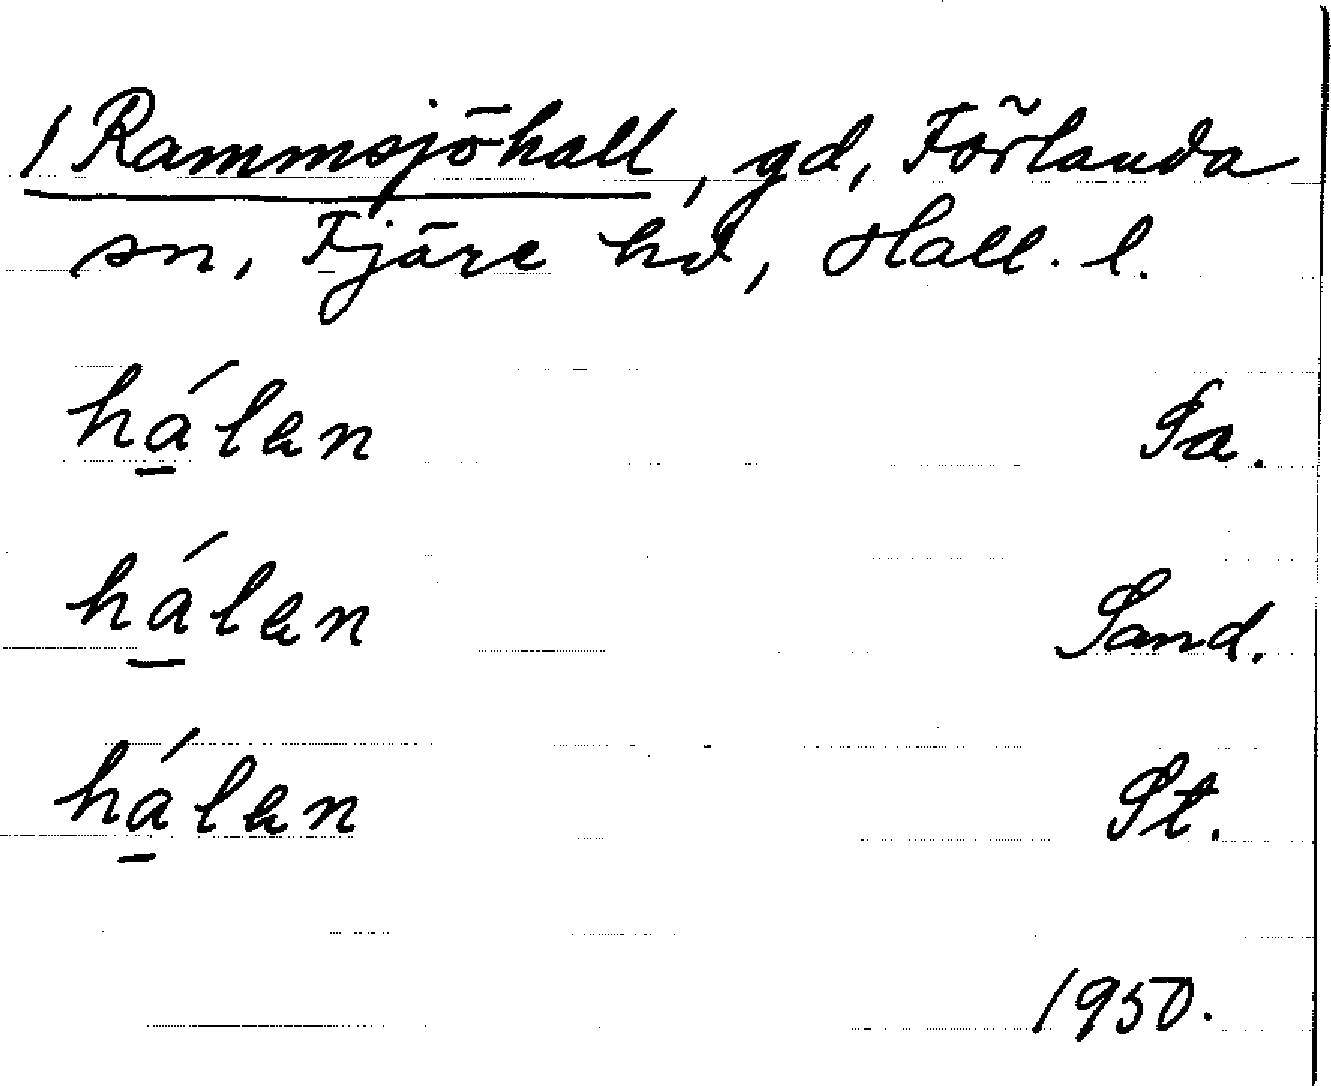 1 Rammsjöhall, gd, Förlanda
sn, Fjäre hd, Hall. l.
hálen Sa.
hálen Sand.
hálen St.
1950.